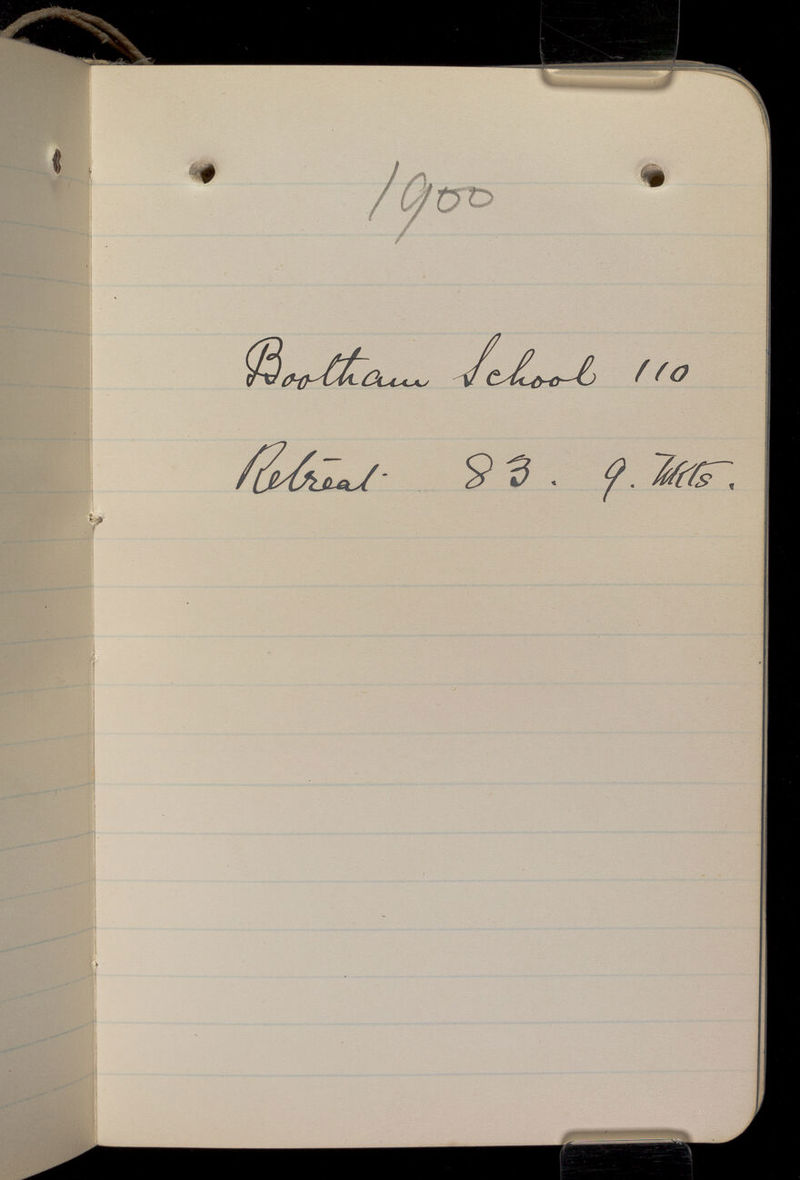 1900
Bootham School 110
Retreat 83. 9. Wkts.